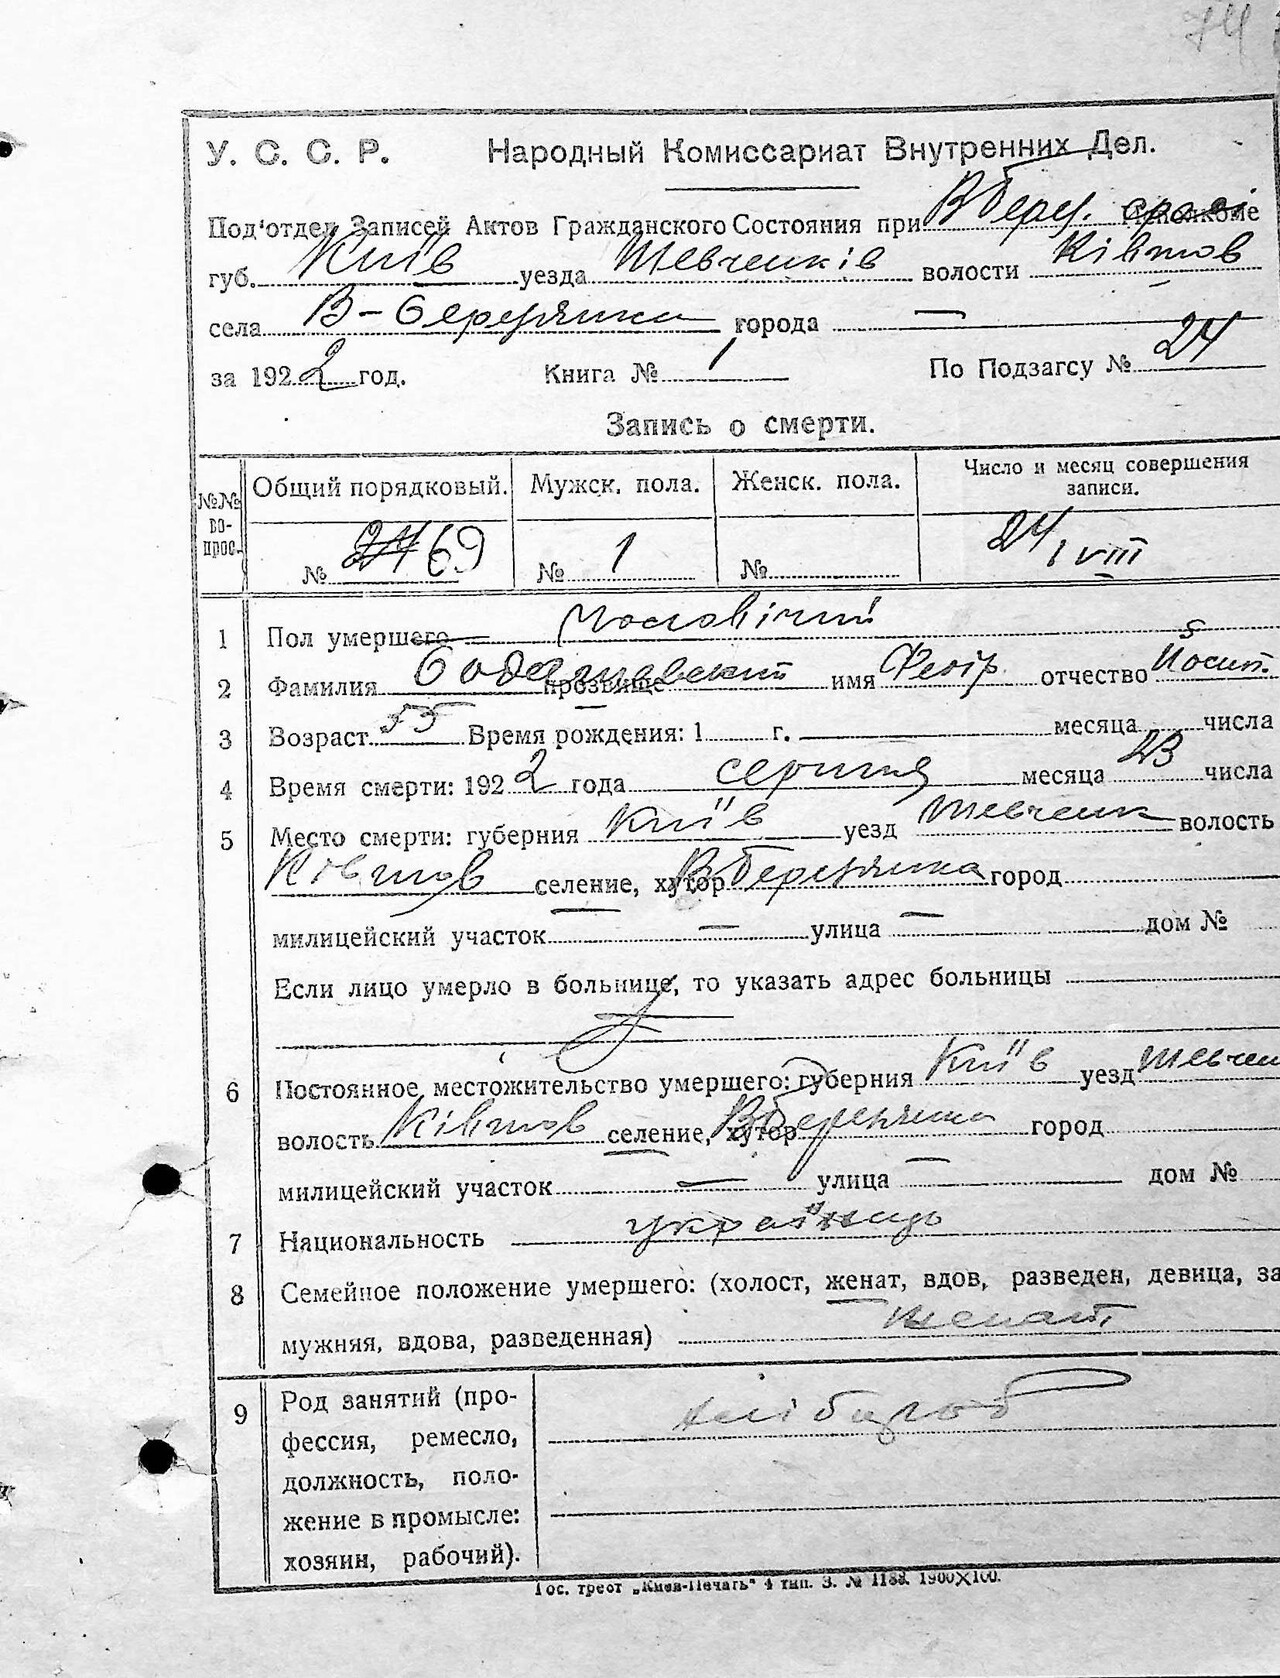 74
У. С. С. Р. Народный Комиссариат Внутренних Дел.
Под'отдел Записей Актов Гражданского Состояния при В Берез. Исполкоме
губ. Київ уезда Шевченків волости Ківшов
села В-Березянка города —
за 1922 год. Книга № 1 По Подзагсу № 24
Запись о смерти.
№№ вопрос. Общий порядковый. Мужск. пола. Женск. пола. Число и месяц совершения записи.
№ 24 69 № 1 № 24/VIII
1 Пол умершего
2 Фамилия прозвище имя Федір отчество Йосип.
3 Возраст 55 Время рождения: 1 г. месяца числа
4 Время смерти: 1922 года серпня месяца 23 числа
5 Место смерти: губерния Київ уезд Шевченк волость
Ківшов селение, хутор В Березянка город
милицейский участок — улица — дом №
Если лицо умерло в больнице, то указать адрес больницы
6 Постоянное местожительство умершего: губерния Київ уезд Шевчен
волость Ківшов селение, хутор В Березянка город
милицейский участок — улица — дом №
7 Национальность українець
8 Семейное положение умершего: (холост, женат, вдов, разведен, девица, за
мужняя, вдова, разведенная) женат
9 Род занятий (про-
фессия, ремесло,
должность, поло-
жение в промысле:
хозяин, рабочий).
хлібороб
Гос. трест „Киев-Печать" 4 тип. З. № 1900×100.